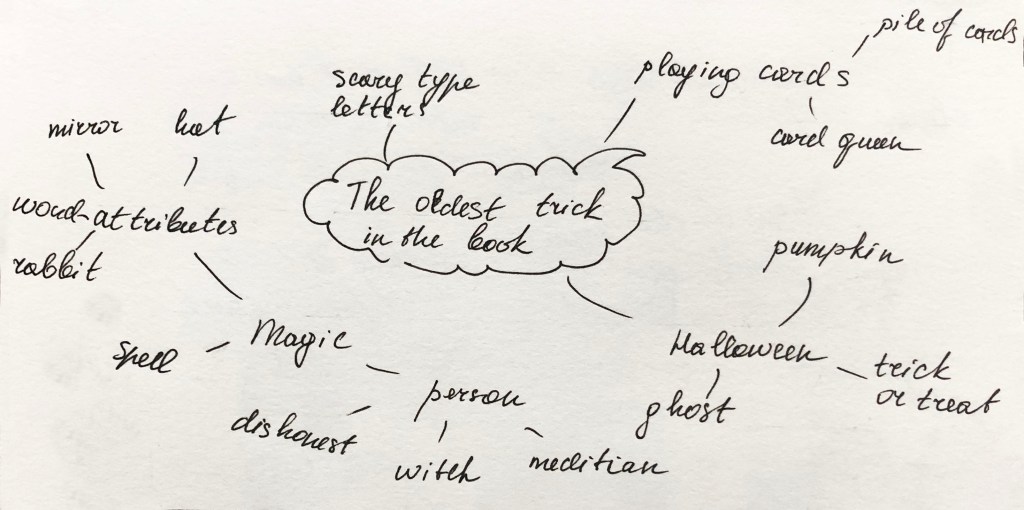 pile of cards
scary type
letters
playing cards
mirror
hat
card queen
The oldest trick
in the book
attributes
rabbit
pumpkin
Magic
Halloween
Spell
trick
or treat
person
ghost
dishonest
witch